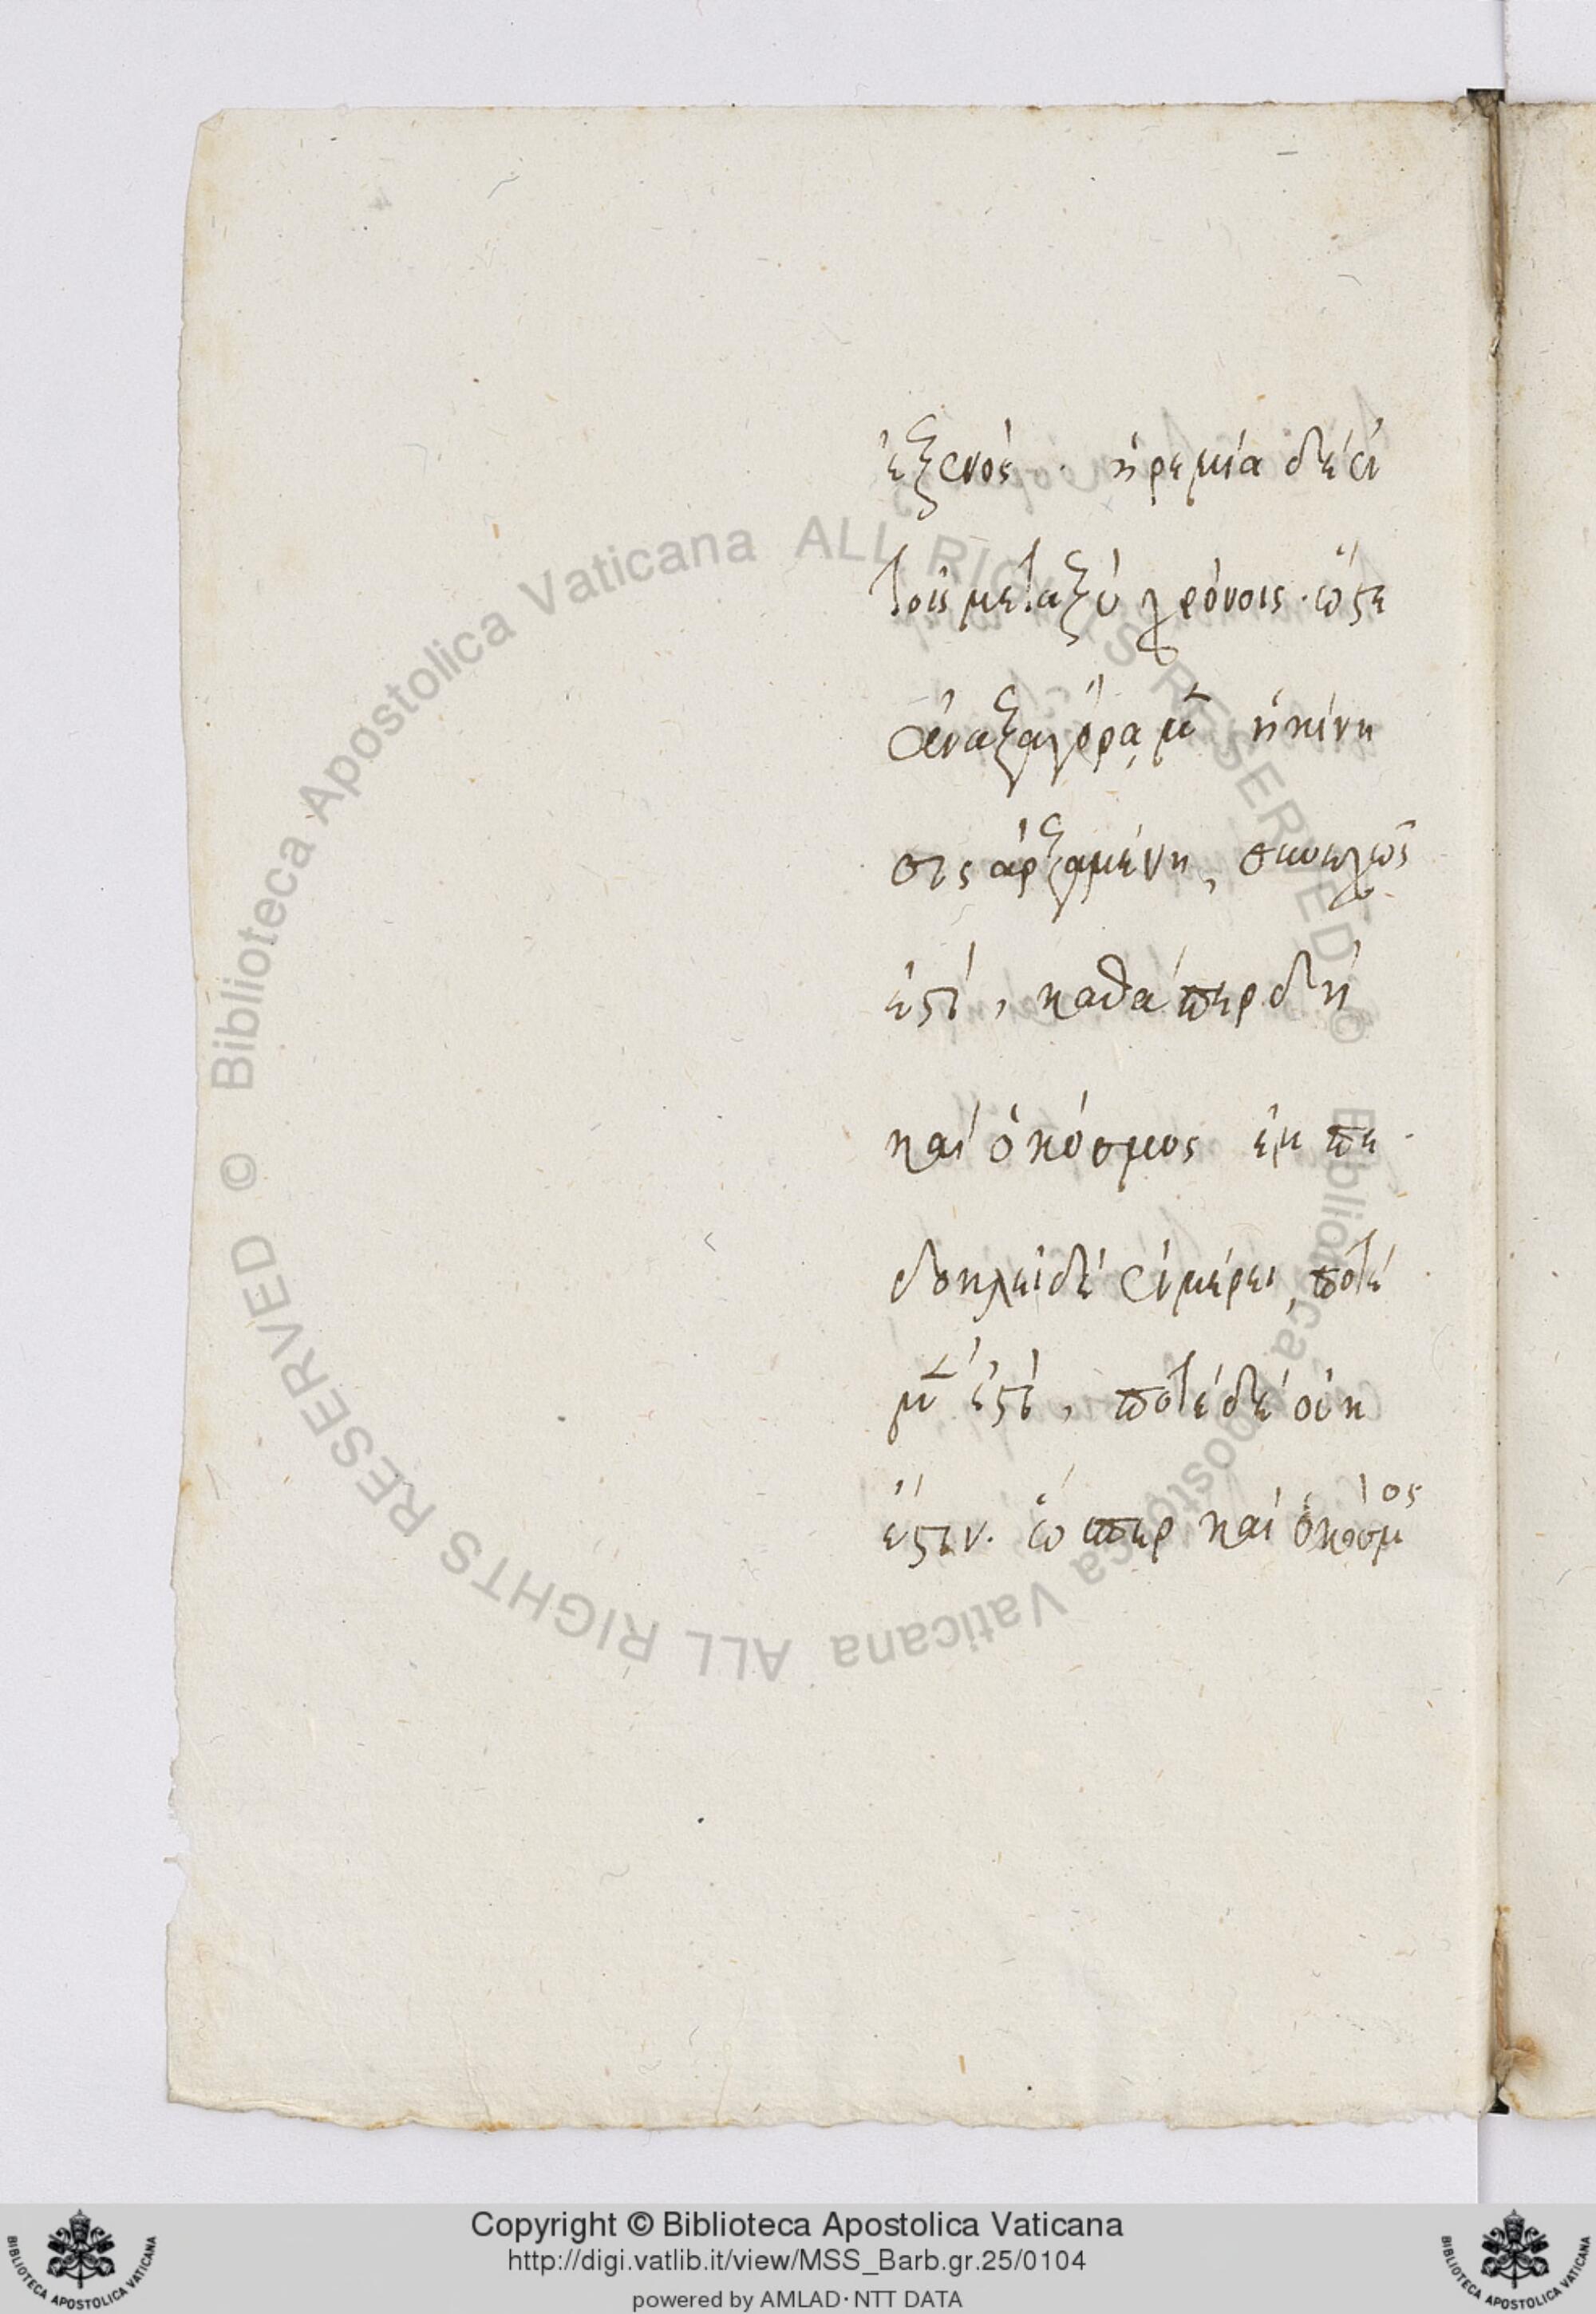 ἐξ ἑνός. ἠρεμία δὲ ἐν
τοῖς μεταξὺ χρόνοις. ὥστε
ἀναξαγόρα, μὲν ἡ κίνη
σις ἀρξαμένη, συνεχῶς
ἐστὶ, καθάπερ δὴ
καὶ ὁ κόσμος ἐμπε
δοκλεῖ δὲ ἐν μέρει, ποτὲ
μὲν ἐστὶ, ποτὲ δὲ οὐκ
ἔστιν. ὥσπερ καὶ ὁ κόσμος
Biblioteca Apostolica Vaticana ALL RIGHTS RESERVED ©
Biblioteca Apostolica Vaticana ALL RIGHTS RESERVED ©
Copyright © Biblioteca Apostolica Vaticana
http://digi.vatlib.it/view/MSS_Barb.gr.25/0104
powered by AMLAD·NTT DATA
BIBLIOTECA APOSTOLICA VATICANA
BIBLIOTECA APOSTOLICA VATICANA